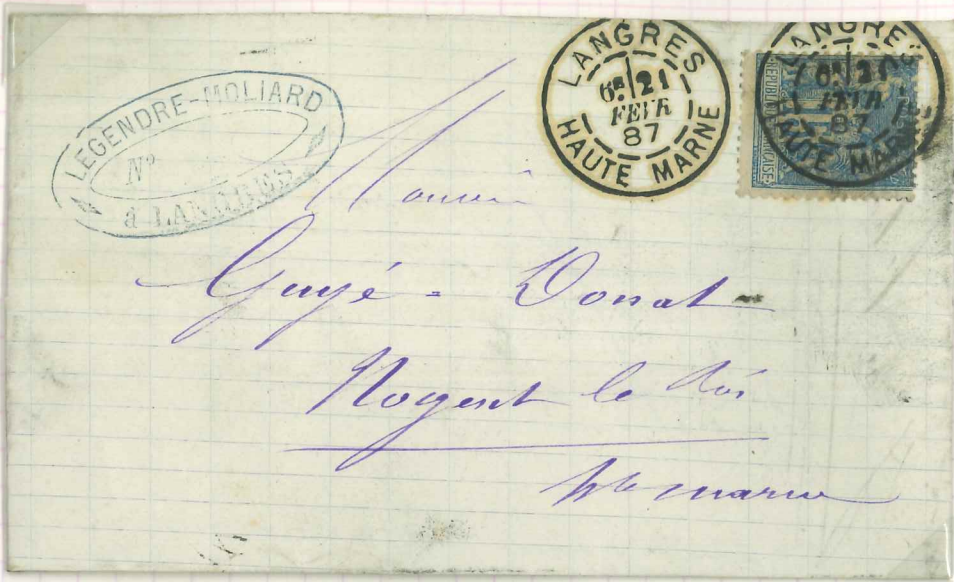 LEGENDRE-MOLIARD
No
à LANGRES
LANGRES
6E 21
FEVR
87
HAUTE MARNE
LANGRES
6E 21
FEVR
87
HAUTE MARNE
Monsieur
Guyé - Donat
Nogent le Roi
hte marne